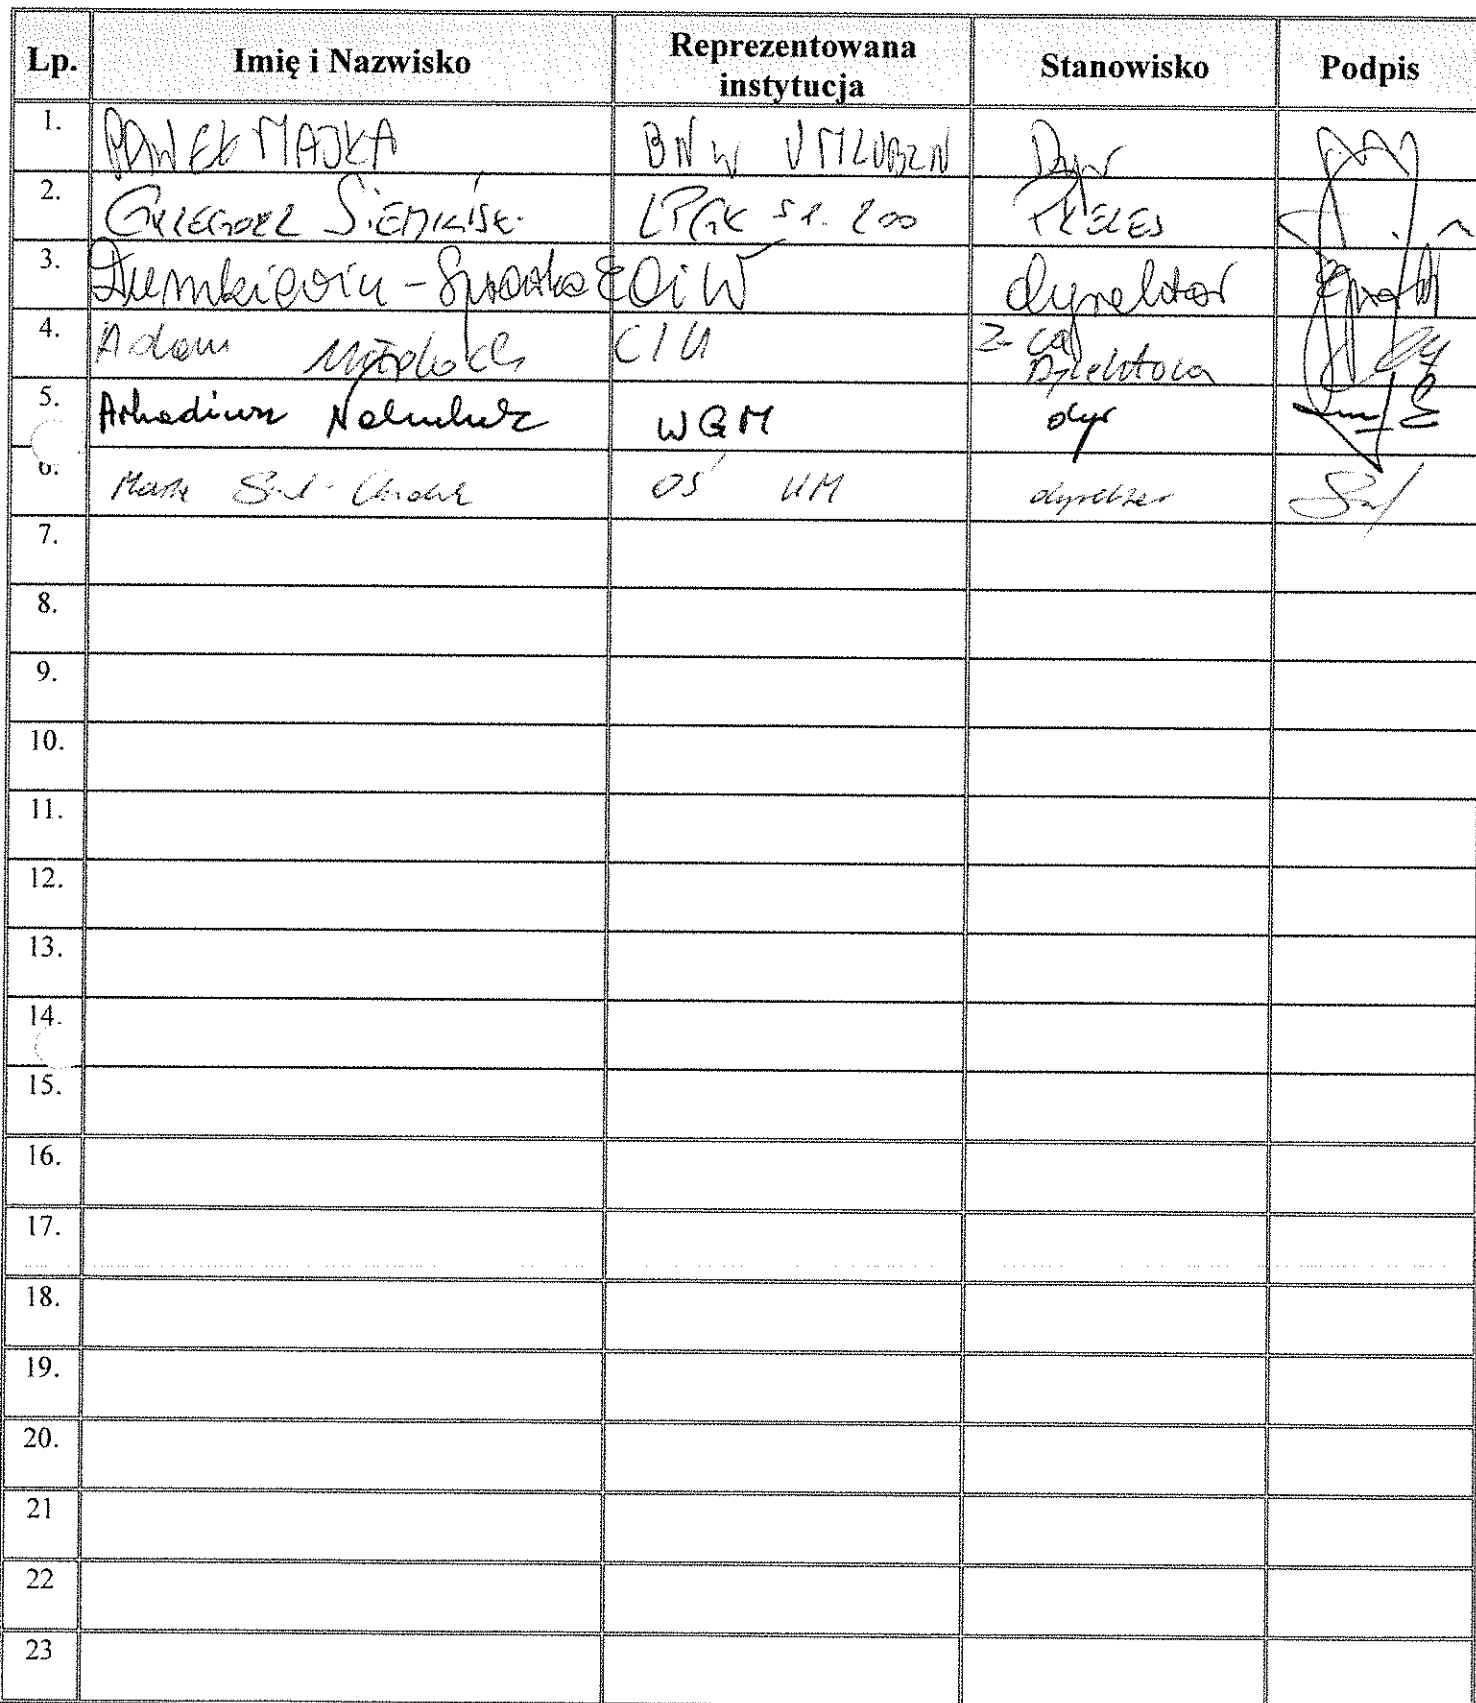 Lp. Imię i Nazwisko Reprezentowana instytucja Stanowisko Podpis
1. PAWEŁ MAJKA BNW UM LUBLIN Dyr
2. GRZEGORZ LPGK PREZES
3. EOiW dyrektor
4. Adam CIU Z-ca Dyrektora
5. Arkadiusz Nahuluk WGM dyr
6. OŚ UM dyrektor
7.
8.
9.
10.
11.
12.
13.
14.
15.
16.
17.
18.
19.
20.
21
22
23